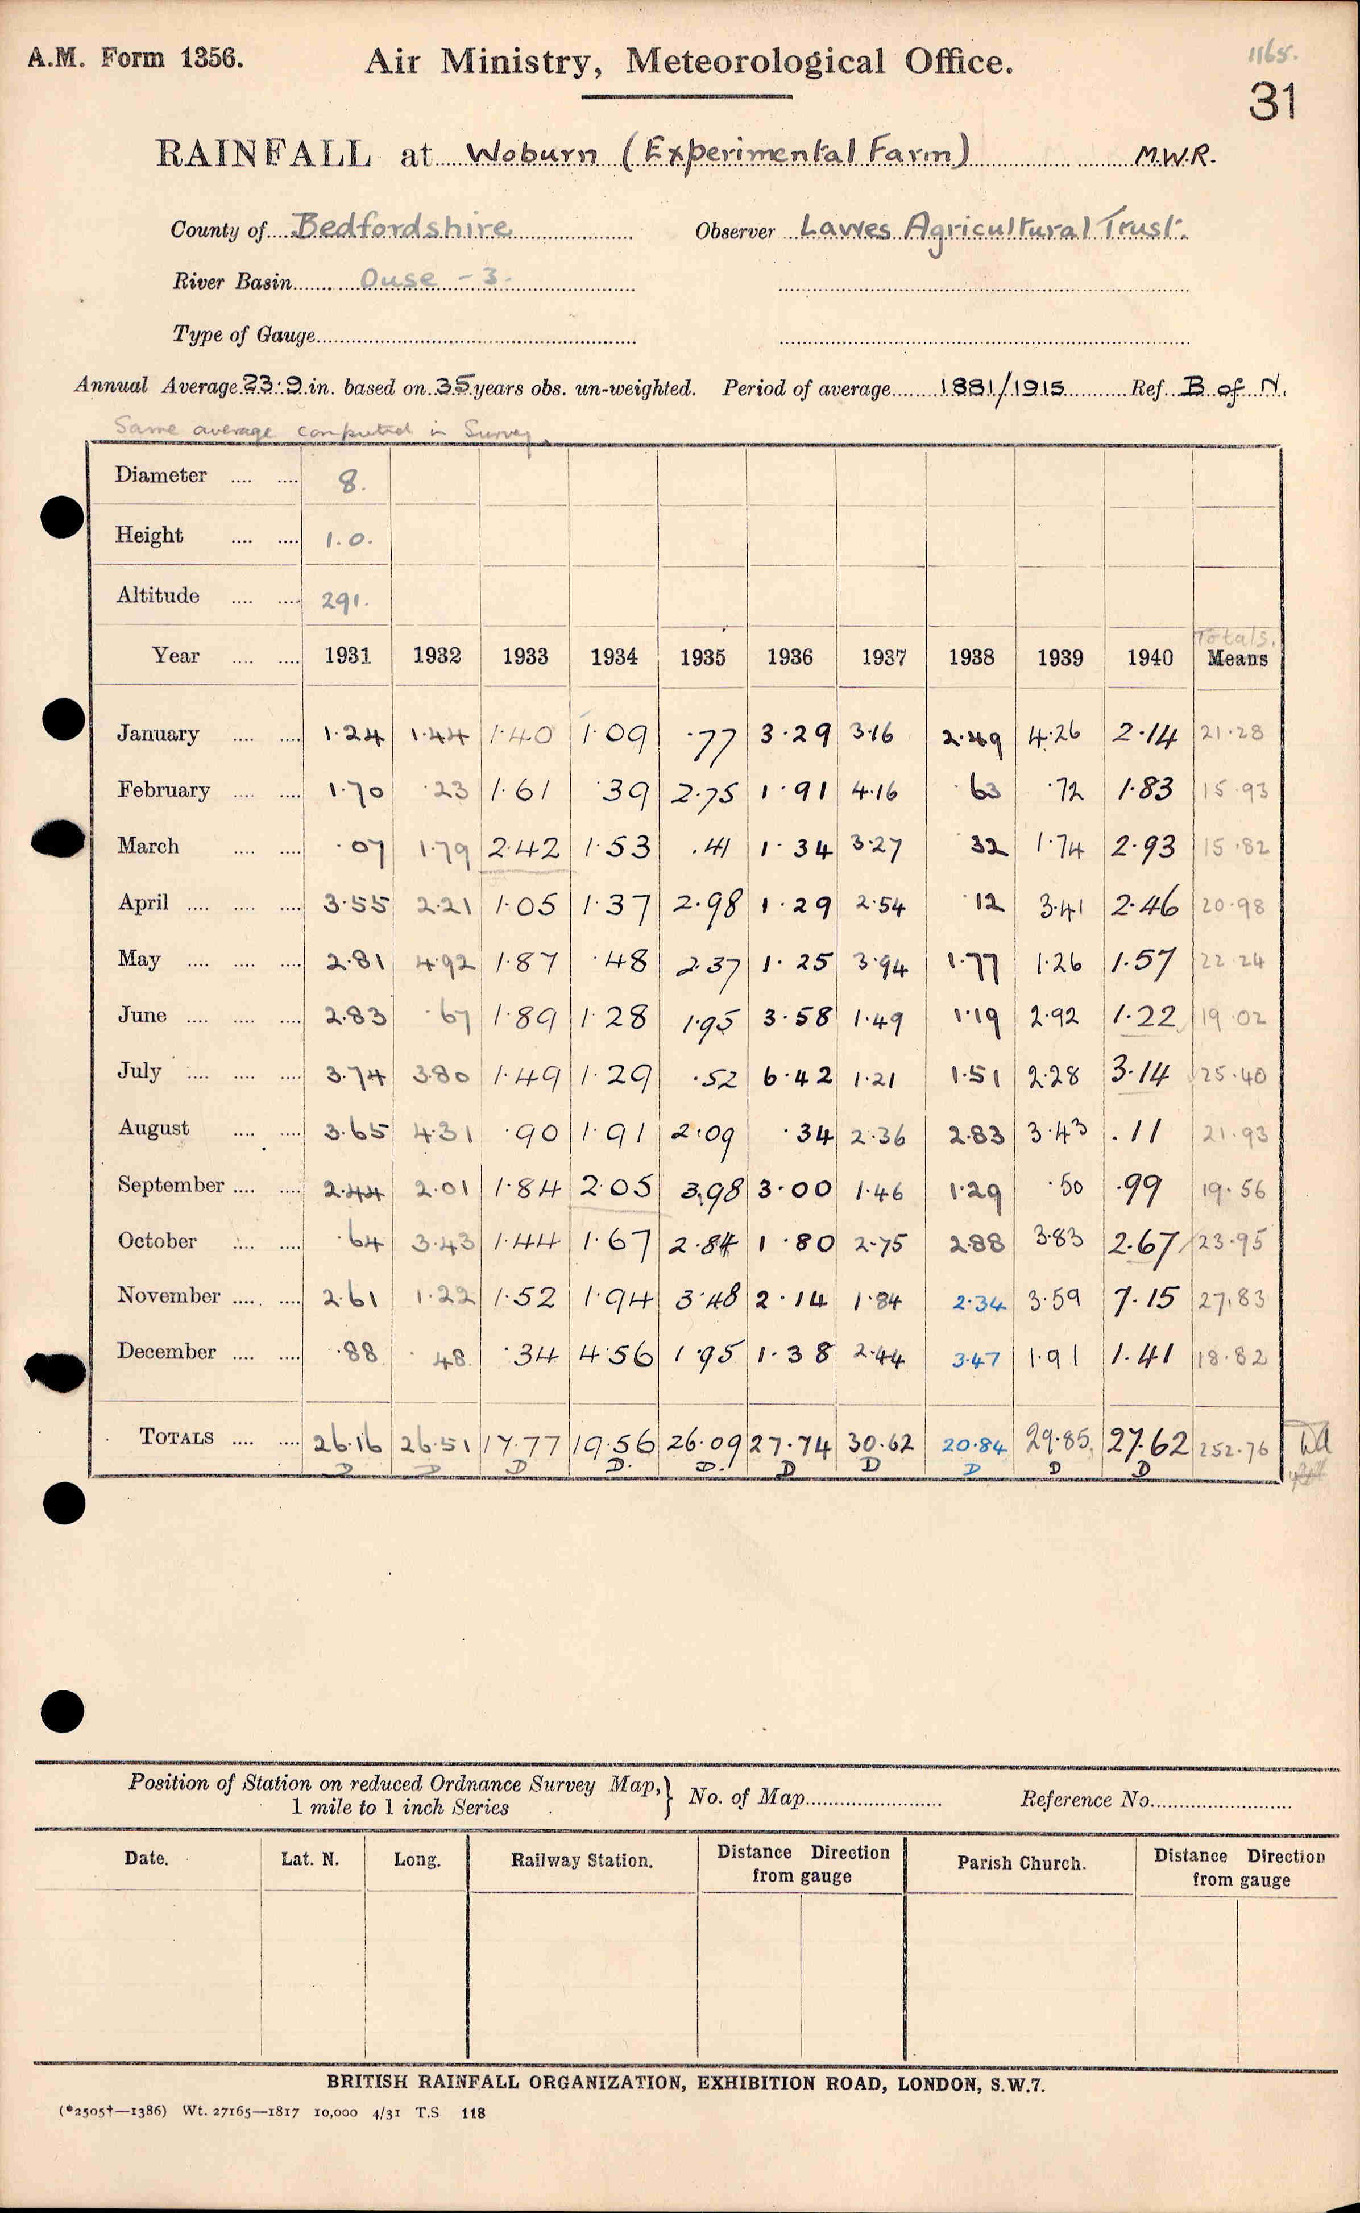 A.M. Form 1356.
Air Ministry, Meteorological Office.
1165.
31
RAINFALL at Woburn (Experimental Farm) M.W.R.
County of Bedfordshire Observer Lawes Agricultural Trust.
River Basin Ouse - 3.
Type of Gauge
Annual Average 23.9 in. based on 35 years obs. un-weighted. Period of average 1881/1915 Ref. B of N.
Same average computed in Survey.
Diameter 8.
Height 1.0.
Altitude 291.
Totals.
Year 1931 1932 1933 1934 1935 1936 1937 1938 1939 1940 Means
January 1.24 1.44 1.40 1.09 .77 3.29 3.16 2.49 4.26 2.14 21.28
February 1.70 .23 1.61 .39 2.75 1.91 4.16 .63 .72 1.83 15.93
March .07 1.79 2.42 1.53 .41 1.34 3.27 .32 1.74 2.93 15.82
April 3.55 2.21 1.05 1.37 2.98 1.29 2.54 .12 3.41 2.46 20.98
May 2.81 4.92 1.87 .48 2.37 1.25 3.94 1.77 1.26 1.57 22.24
June 2.83 .67 1.89 1.28 1.95 3.58 1.49 1.19 2.92 1.22 19.02
July 3.74 3.80 1.49 1.29 .52 6.42 1.21 1.51 2.28 3.14 25.40
August 3.65 4.31 .90 1.91 2.09 .34 2.36 2.83 3.43 .11 21.93
September 2.44 2.01 1.84 2.05 3.98 3.00 1.46 1.29 .50 .99 19.56
October .64 3.43 1.44 1.67 2.84 1.80 2.75 2.88 3.83 2.67 23.95
November 2.61 1.22 1.52 1.94 3.48 2.14 1.84 2.34 3.59 7.15 27.83
December .88 .48 .34 4.56 1.95 1.38 2.44 3.47 1.91 1.41 18.82
TOTALS 26.16 26.51 17.77 19.56 26.09 27.74 30.62 20.84 29.85 27.62 252.76
D D D D. D. D D D D D
Position of Station on reduced Ordnance Survey Map, } No. of Map Reference No.
1 mile to 1 inch Series
Date. Lat. N. Long. Railway Station. Distance Direction from gauge Parish Church. Distance Direction from gauge
BRITISH RAINFALL ORGANIZATION, EXHIBITION ROAD, LONDON, S.W.7.
(*2505†—1386) Wt. 27165—1817 10,000 4/31 T.S 118